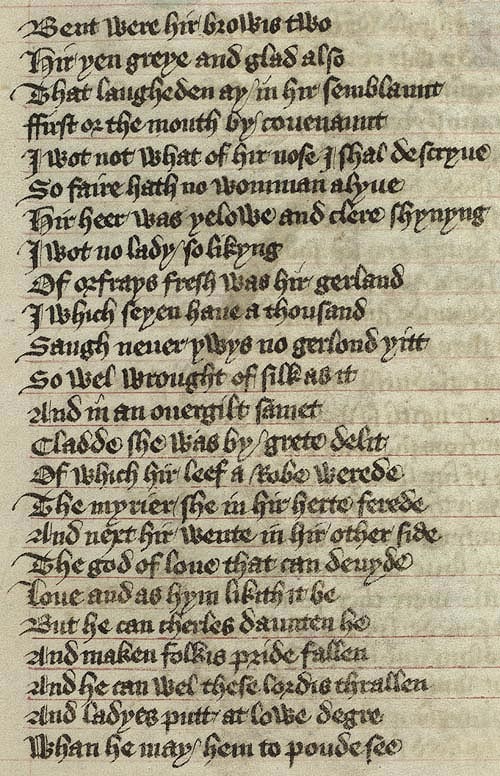 Bent were hir browis two
Hir yen greye and glad also
That laugheden ay / in hir semblaunt
ffirst or the mouth by / couenaunt
I wot not what of hir nose I shal descryue
So faire hath no womman alyue
Hir heer was yelowe and clere shynyng
I wot no lady / so likyng
Of orfrays fresh was hir gerland
I which seyen haue a thousand
Saugh neuer ywys no gerlond yitt
So wel wrought of silk as it
And in an ouergilt samet
Cladde she was by / grete delit
Of which hir leef a Robe werede
The myrier she in hir herte ferede
And next hir wente in hir other side
The god of loue that can deuyde
Loue and as hym likith it be
But he can cherles daunten he
And maken folkis pride fallen
And he can wel these lordis thrallen
And ladyes putt at lowe degre
Whan he may / hem to poude see